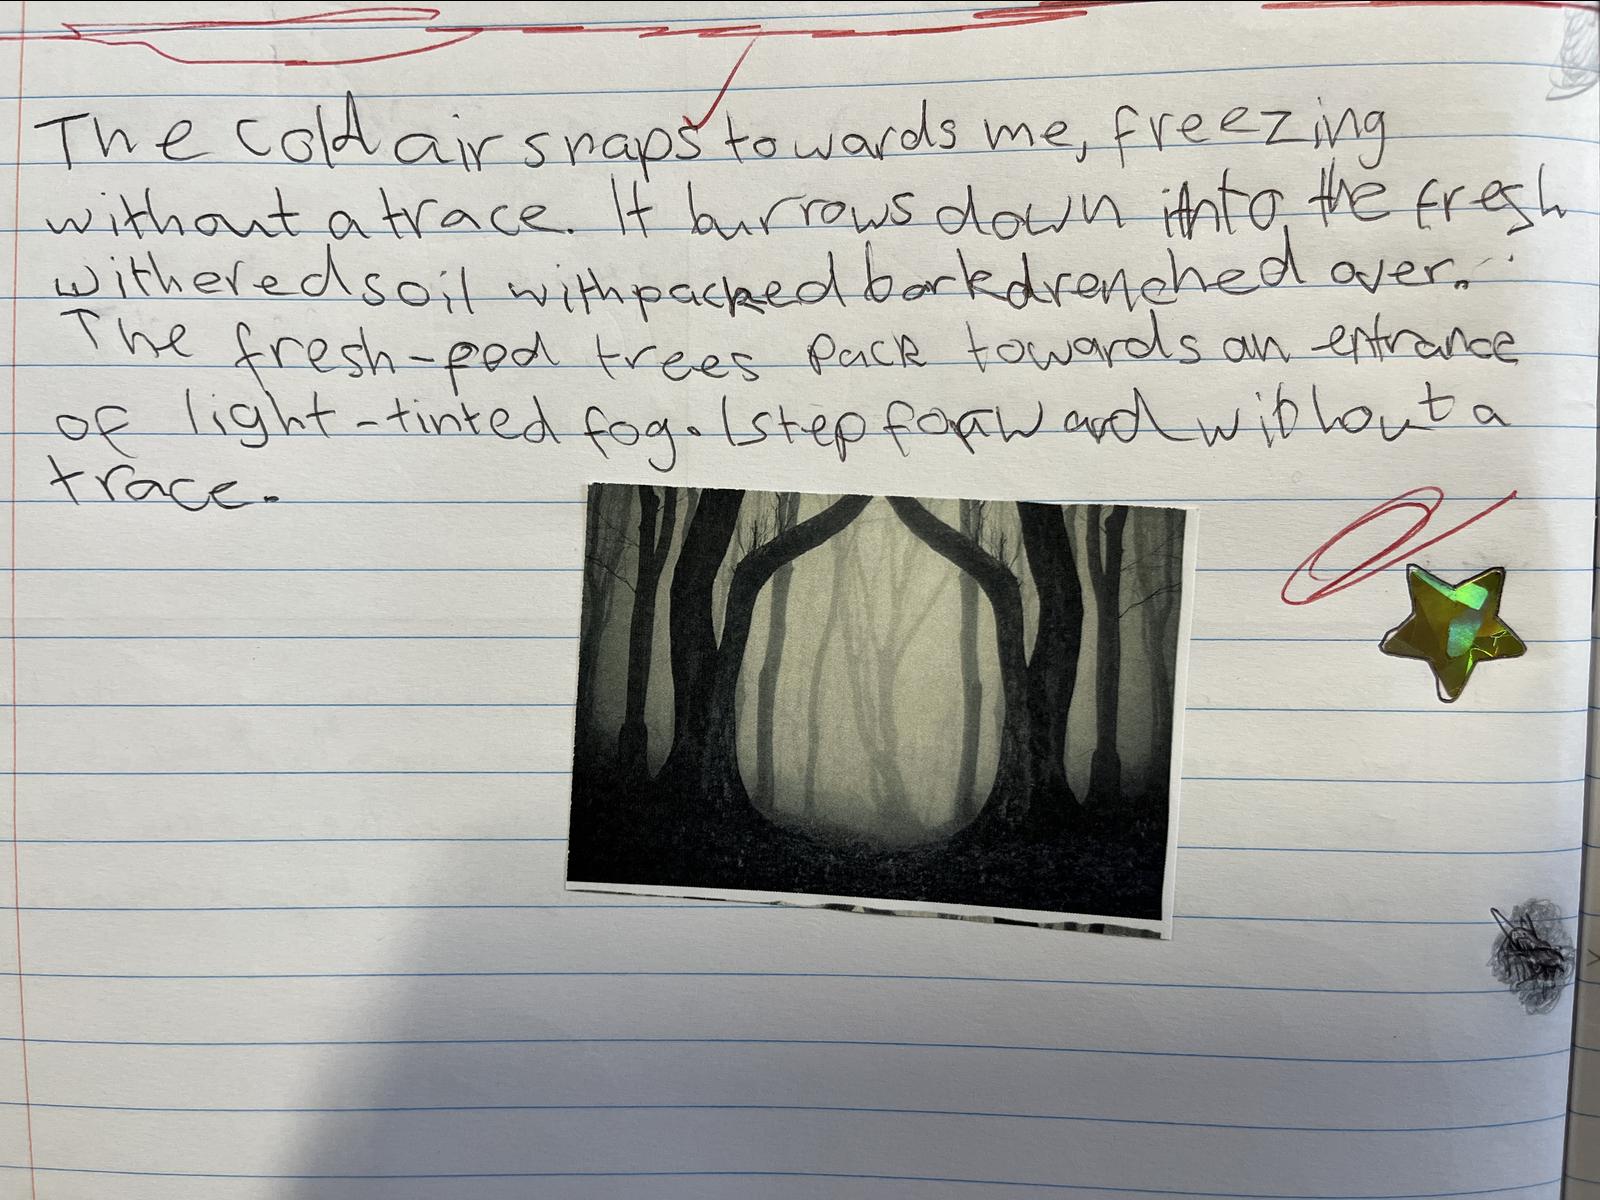 The cold air snaps towards me, freezing
without a trace. It burrows down into the fresh
withered soil with packed bark drenched over.
The fresh-pod trees pack towards an entrance
of light-tinted fog. I step forward without a
trace.